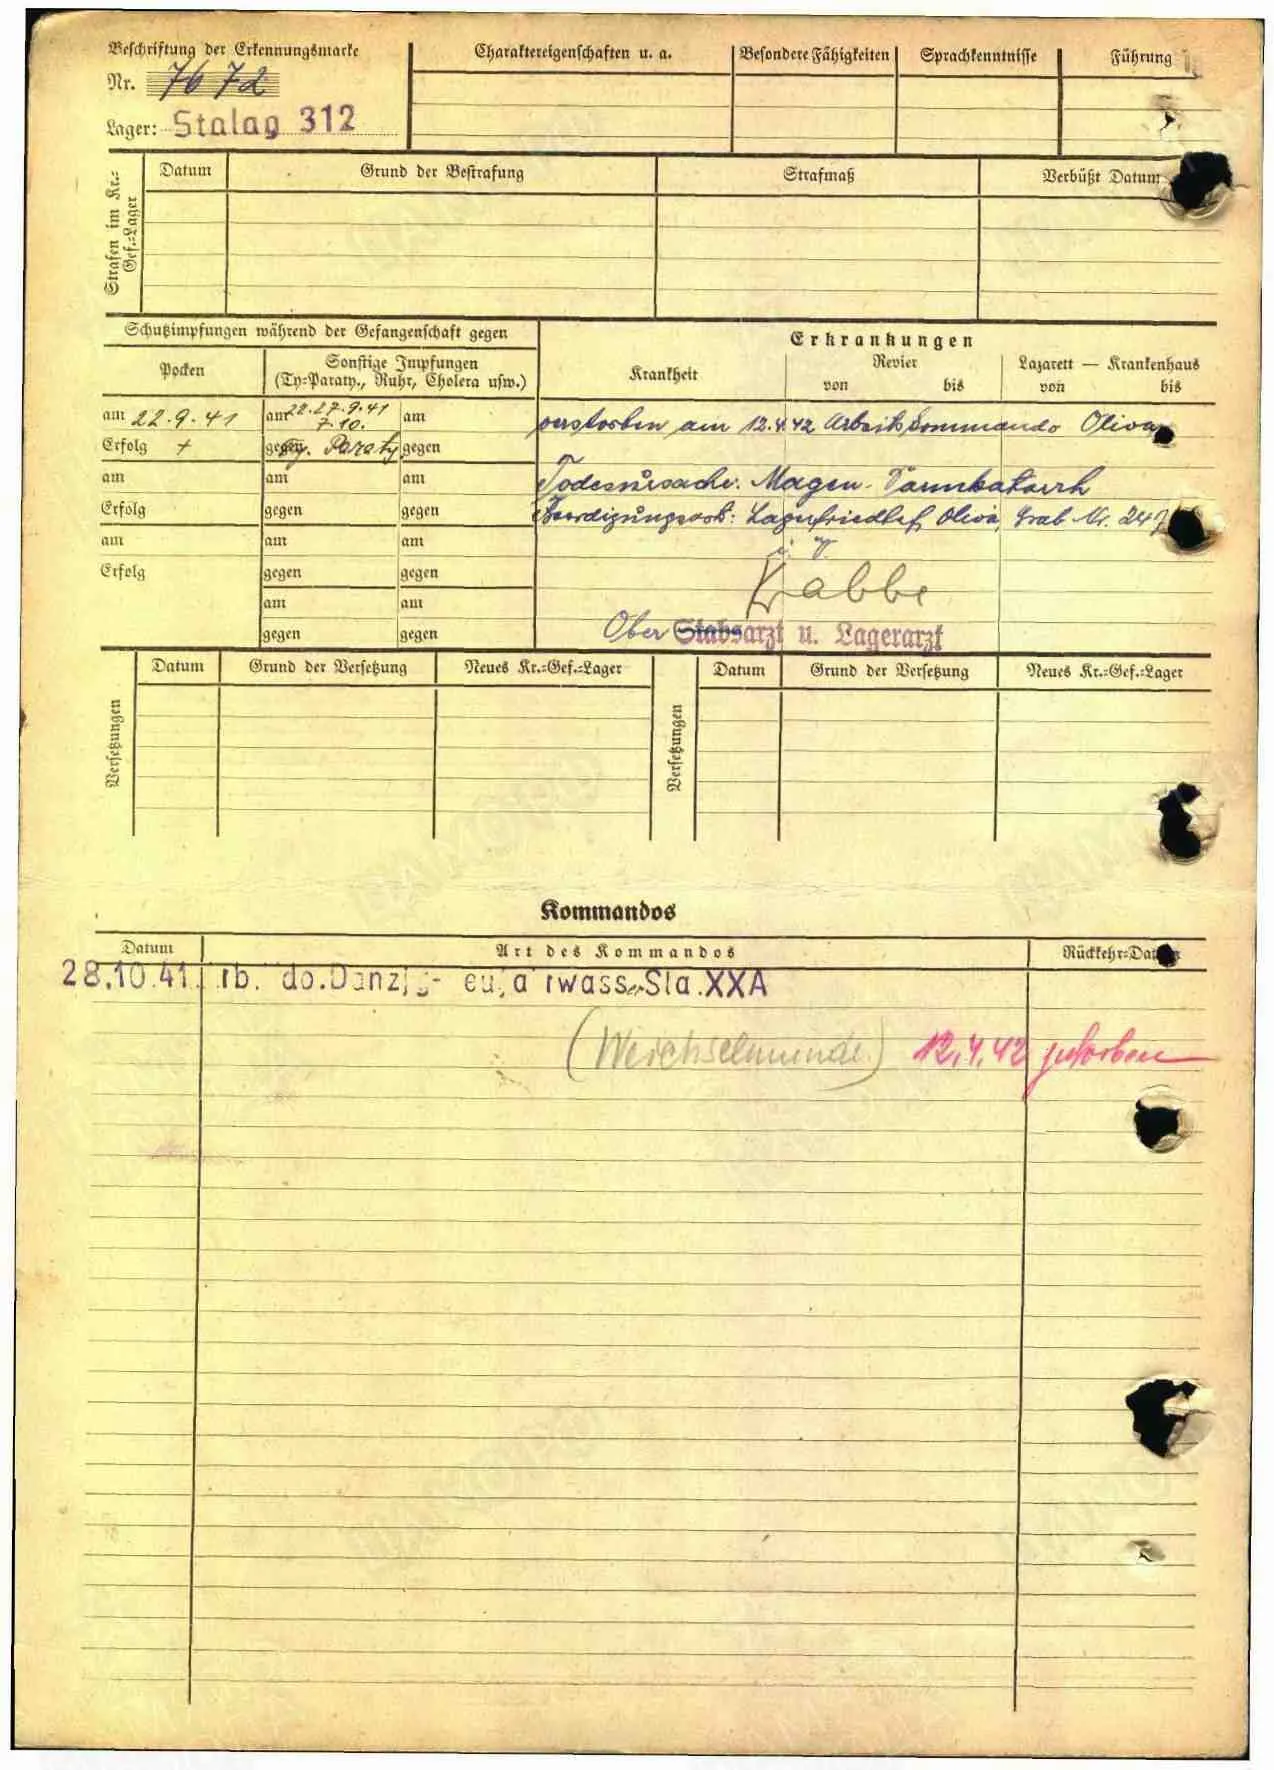 Beschriftung der Erkennungsmarke
Nr. 7672
Lager: Stalag 312
Charaktereigenschaften u. a.
Besondere Fähigkeiten
Sprachkenntnisse
Führung
Strafen im Kr.=Gef.=Lager
Datum
Grund der Bestrafung
Strafmaß
Verbüßt Datum
Schutzimpfungen während der Gefangenschaft gegen
Pocken
Sonstige Impfungen
(Ty=Paraty., Ruhr, Cholera usw.)
am 22.9.41 am 22.27.9.41 am
7.10.
Erfolg + gegen Ty. Paraty. gegen
am am am
Erfolg gegen gegen
am am am
Erfolg gegen gegen
am am
gegen gegen
Erkrankungen
Krankheit
Revier
von bis
Lazarett — Krankenhaus
von bis
verstorben am 12.4.42 Arbeitskommando Oliva
Todesursache: Magen-Darmkatarrh
Beerdigungsort: Lagerfriedhof Oliva, Grab Nr. 247
i. V.
Krabbe
Ober Stabsarzt u. Lagerarzt
Versetzungen
Datum
Grund der Versetzung
Neues Kr.=Gef.=Lager
Versetzungen
Datum
Grund der Versetzung
Neues Kr.=Gef.=Lager
Kommandos
Datum
Art des Kommandos
Rückkehr=Dat
28.10.41 rb. do. Danzig- eu, a rwass. Sta. XXA
(Weichselmünde) 12.4.42 gestorben